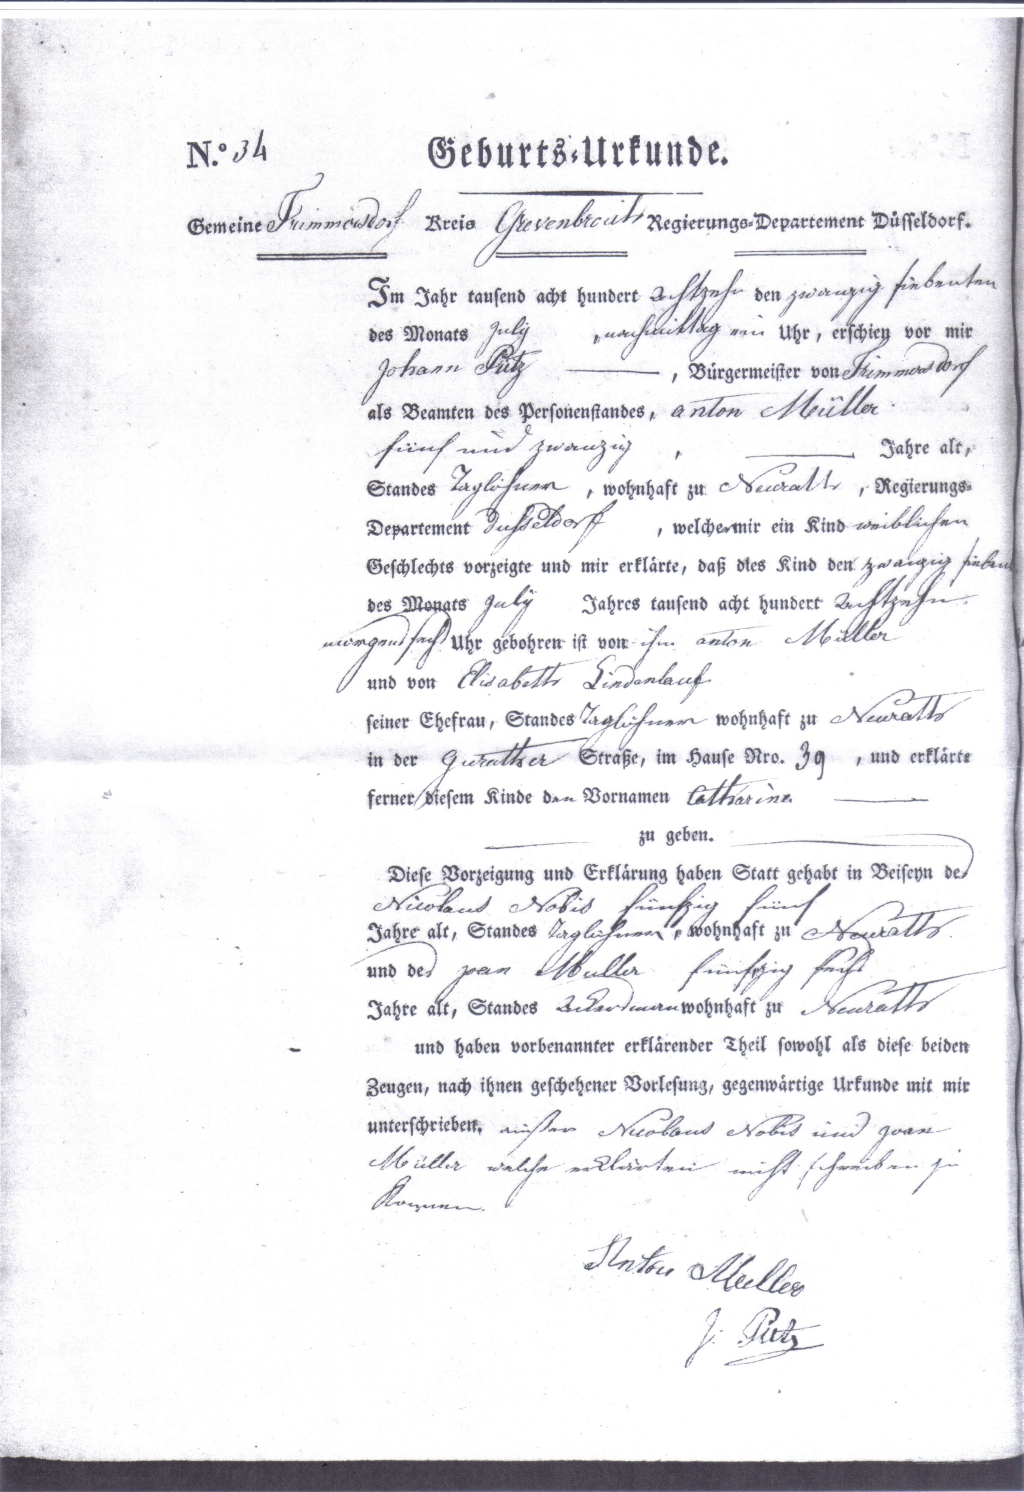 N.º 34 Geburts-Urkunde.
Gemeine Frimmersdorf Kreis Grevenbroich Regierungs-Departement Düsseldorf.
Im Jahr tausend acht hundert Achtzehn den zwanzig siebenten
des Monats July , nachmittag ein Uhr, erschien vor mir
Johann Pütz , Bürgermeister von Frimmersdorf
als Beamten des Personenstandes, anton Müller
fünf und zwanzig , Jahre alt,
Standes Taglöhner , wohnhaft zu Neurath , Regierungs-
Departement Dusseldorf , welcher mir ein Kind weiblichen
Geschlechts vorzeigte und mir erklärte, daß dies Kind den zwanzig sieben
des Monats July Jahres tausend acht hundert Achtzehn
morgens sechs Uhr gebohren ist von ihm anton Müller
und von Elisabeth Lindenlauf
seiner Ehefrau, Standes Taglöhner wohnhaft zu Neurath
in der Gurather Straße, im Hause Nro. 39 , und erklärte
ferner diesem Kinde den Vornamen Catharina
zu geben.
Diese Vorzeigung und Erklärung haben Statt gehabt in Beiseyn des
Nicolaus Nobis fünfzig fünf
Jahre alt, Standes Taglöhner, wohnhaft zu Neurath
und des joan Muller fünfzig sechs
Jahre alt, Standes Ackersman wohnhaft zu Neurath
und haben vorbenannter erklärender Theil sowohl als diese beiden
Zeugen, nach ihnen geschehener Vorlesung, gegenwärtige Urkunde mit mir
unterschrieben. ausser Nicolaus Nobis und joan
Müller welche erklärten nicht schreiben zu
Konnen.
Anton Muller
J. Pütz